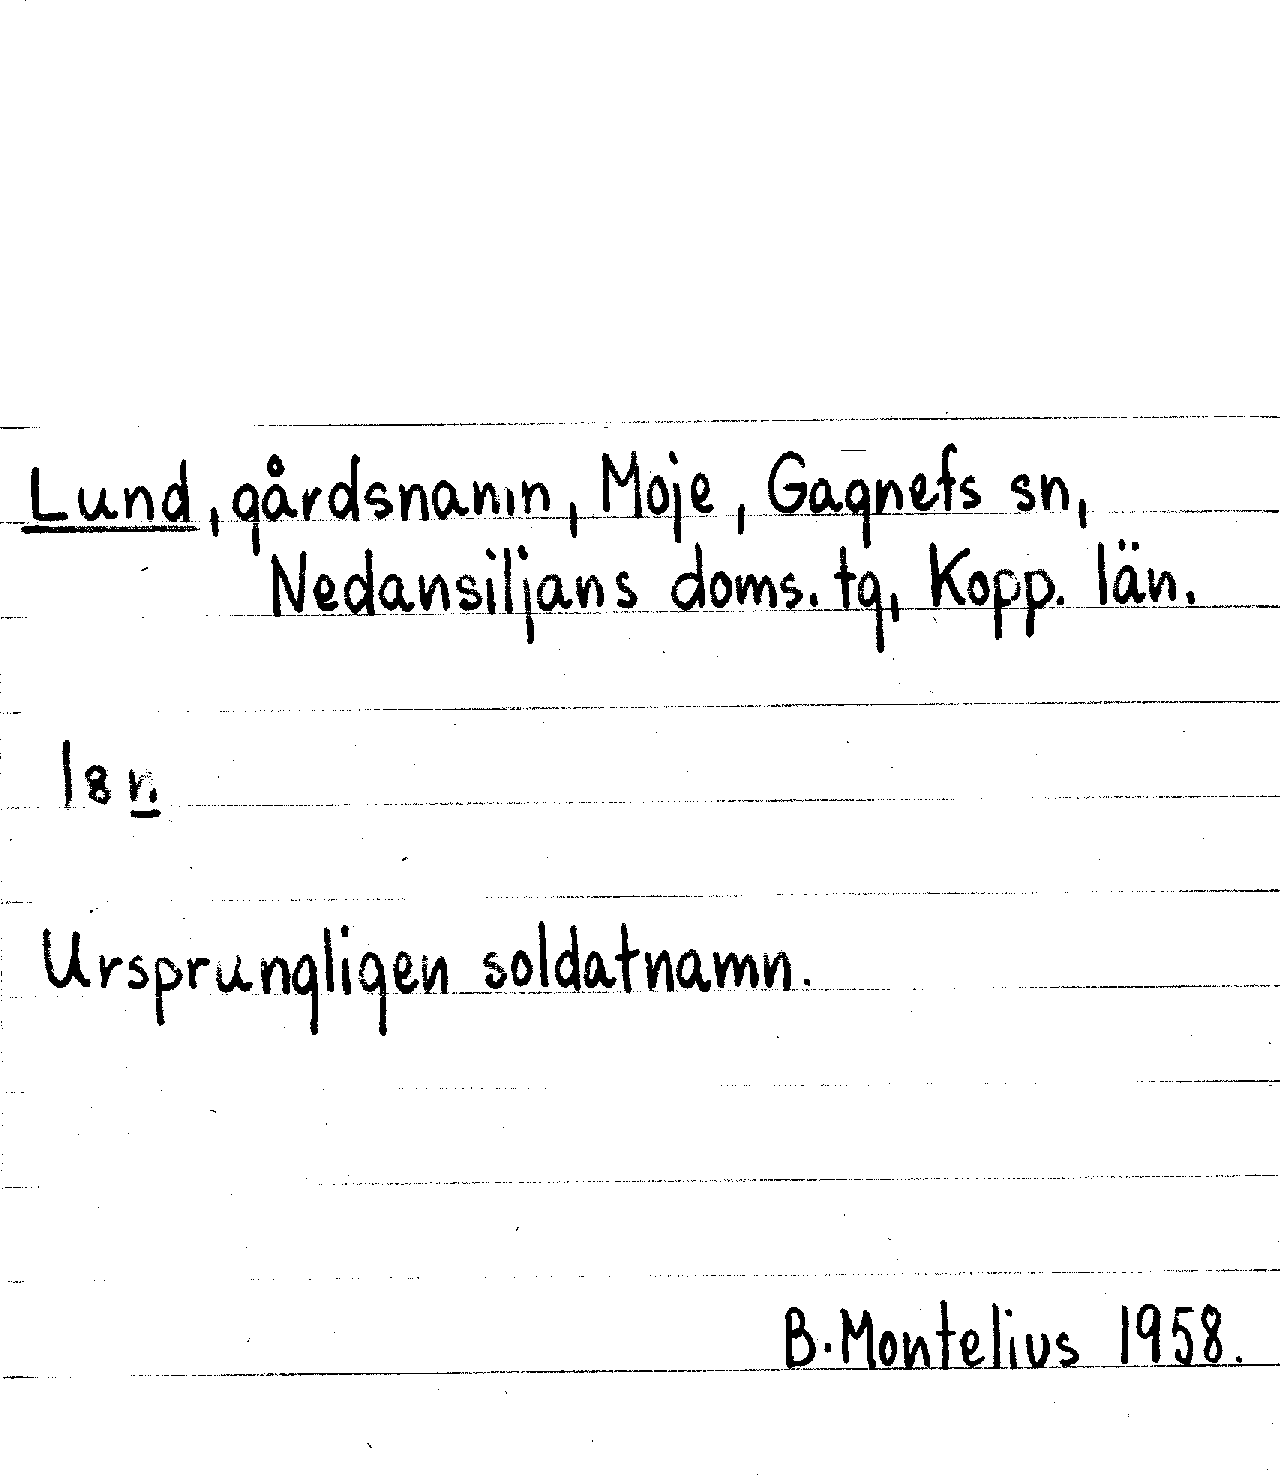 Lund, gårdsnamn, Moje, Gagnefs sn,
Nedansiljans doms. tg, Kopp. län.
Ursprungligen soldatnamn.
B. Montelius 1958.